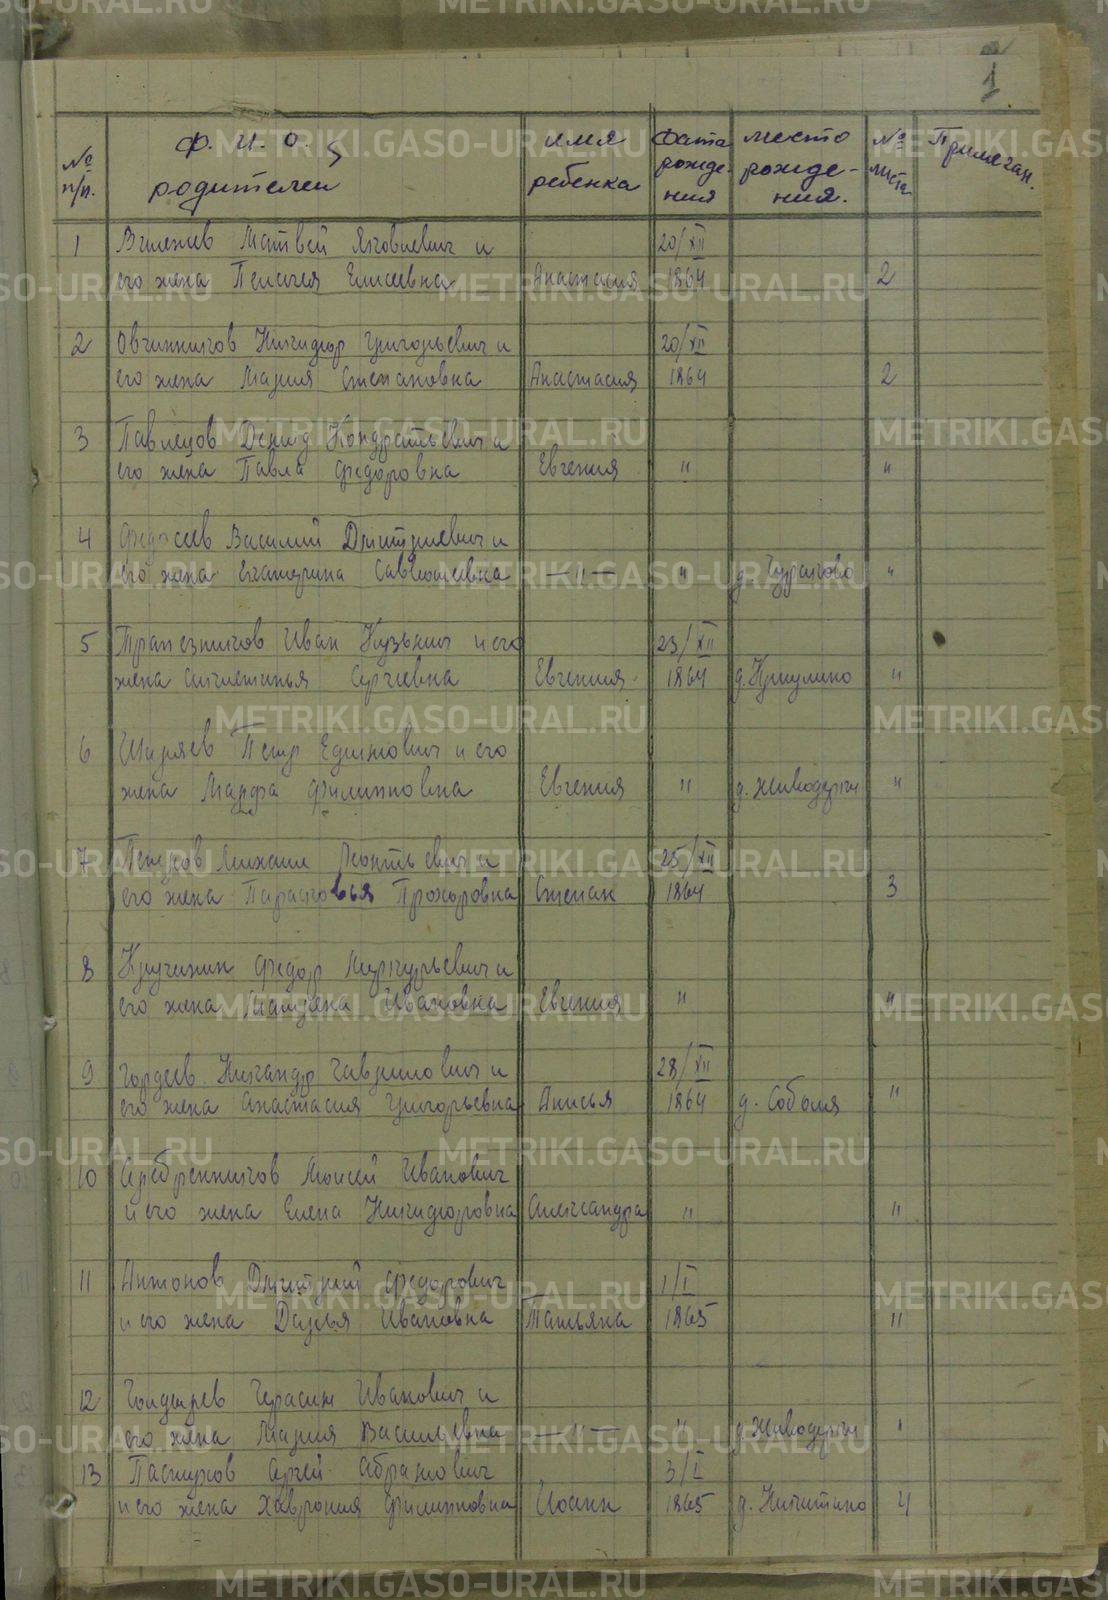 1
№ п/п. Ф. И. О. родителей имя ребенка Дата рождения место рожде-ния. № листа Примечан.
1 Матвей Яковлевич и 20/XII
его жена Пелагея Елисеевна Анастасия 1864 2
2 Овчинников Никифор Григорьевич и 20/XII
его жена Мария Степановна Анастасия 1864 2
3 Павлецов Демид Кондратьевич и
его жена Павла Федоровна Евгения " "
4 Федосеев Василий Дмитриевич и
его жена Екатерина Савватеевна —"— " "
5 Трапезников Иван Кузьмич и его 23/XII
жена Сергеевна Евгения 1864 д. Крутулино "
6 Ширяев Петр Ефимович и его
жена Марфа Филипповна Евгения " д. Живодерки "
7 Петухов Михаил Леонтьевич и 25/XII
его жена Парасковья Прохоровна Степан 1864 3
8 Кручинин Федор Меркурьевич и
его жена Матрена Ивановна Евгения " "
9 Гордеев Никандр Гаврилович и 28/XII
его жена Анастасия Григорьевна Анисья 1864 д. Соболя "
10 Серебренников Моисей Иванович
и его жена Елена Никифоровна Александра " "
11 Антонов Дмитрий Федорович 1/I
и его жена Дарья Ивановна Татьяна 1865 "
12 Герасим Иванович и
его жена Мария Васильевна —"— " д. Живодерки "
13 Пастухов Сергей Абрамович 3/I
и его жена Хаврония Филипповна Иоанн 1865 д. Никитино 4
METRIKI.GASO-URAL.RU